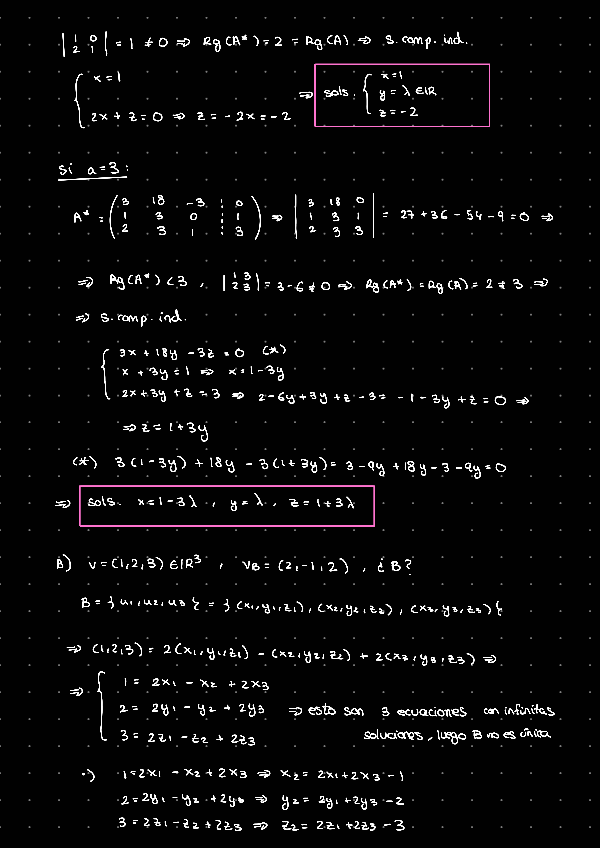 | 1 0 / 2 1 | = 1 ≠ 0 ⇒ Rg(A*) = 2 = Rg(A) ⇒ s. comp. ind.
{ x = 1
2x + z = 0 ⇒ z = -2x = -2
⇒ sols. { x=1
y = λ ∈ IR
z = -2
Si a=3:
A* = ( 3 18 -3 ¦ 0 / 1 3 0 ¦ 1 / 2 3 1 ¦ 3 ) ⇒ | 3 18 0 / 1 3 1 / 2 3 3 | = 27 + 36 - 54 - 9 = 0 ⇒
⇒ Rg(A*) < 3 , | 1 3 / 2 3 | = 3-6 ≠ 0 ⇒ Rg(A*) = Rg(A) = 2 ≠ 3 ⇒
⇒ s. comp. ind.
{ 3x + 18y - 3z = 0 (*)
x + 3y = 1 ⇒ x = 1-3y
2x + 3y + z = 3 ⇒ 2-6y + 3y + z - 3 = -1 - 3y + z = 0 ⇒
⇒ z = 1+3y
(*) 3(1-3y) + 18y - 3(1+3y) = 3 - 9y + 18y - 3 - 9y = 0
⇒ sols. x = 1-3λ , y = λ , z = 1+3λ
B) v = (1,2,3) ∈ IR³ , vB = (2,-1,2) , ¿B?
B = { u1, u2, u3 } = { (x1,y1,z1), (x2,y2,z2), (x3,y3,z3) }
⇒ (1,2,3) = 2(x1,y1,z1) - (x2,y2,z2) + 2(x3,y3,z3) ⇒
⇒ { 1 = 2x1 - x2 + 2x3
2 = 2y1 - y2 + 2y3 ⇒ esto son 3 ecuaciones con infinitas
3 = 2z1 - z2 + 2z3 soluciones, luego B no es única
·) 1 = 2x1 - x2 + 2x3 ⇒ x2 = 2x1 + 2x3 - 1
2 = 2y1 - y2 + 2y3 ⇒ y2 = 2y1 + 2y3 - 2
3 = 2z1 - z2 + 2z3 ⇒ z2 = 2z1 + 2z3 - 3